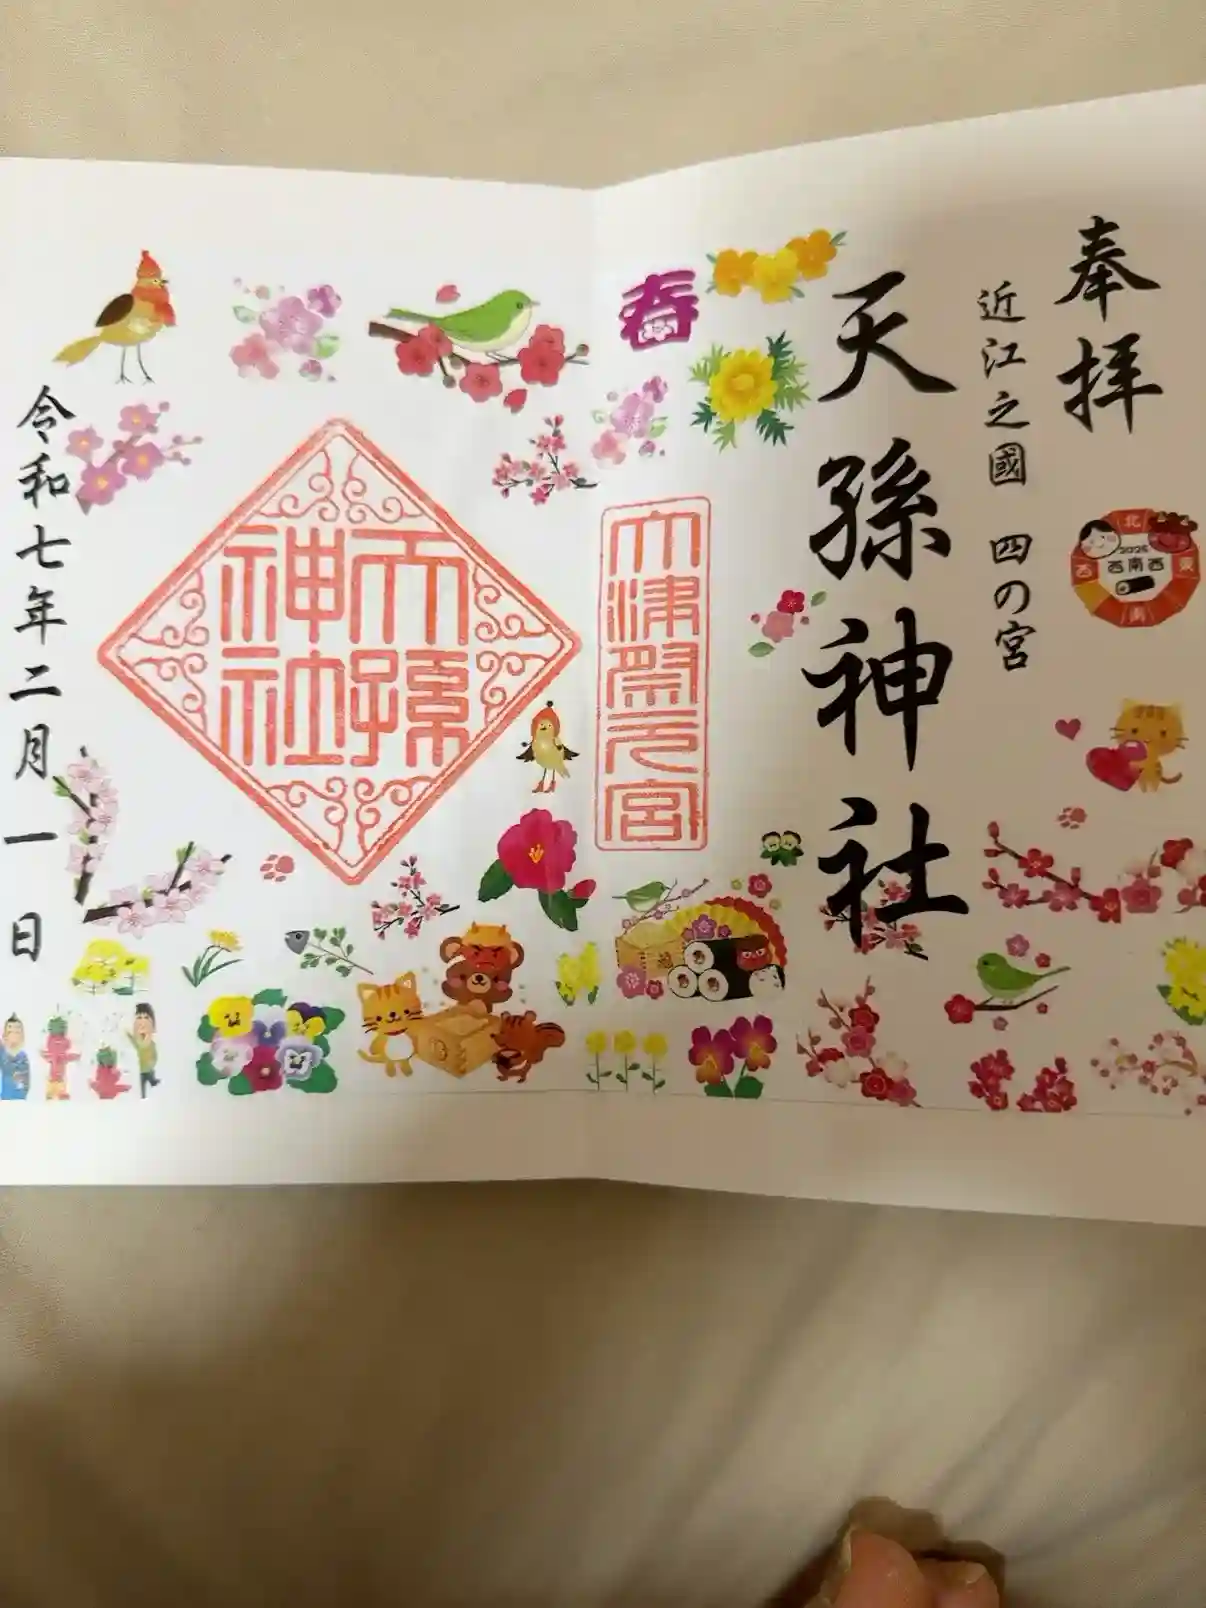 奉拝
近江之國 四の宮
天孫神社
春
大津祭元宮
天孫
神社
令和七年二月一日
北
2025
西 西南西 東
南